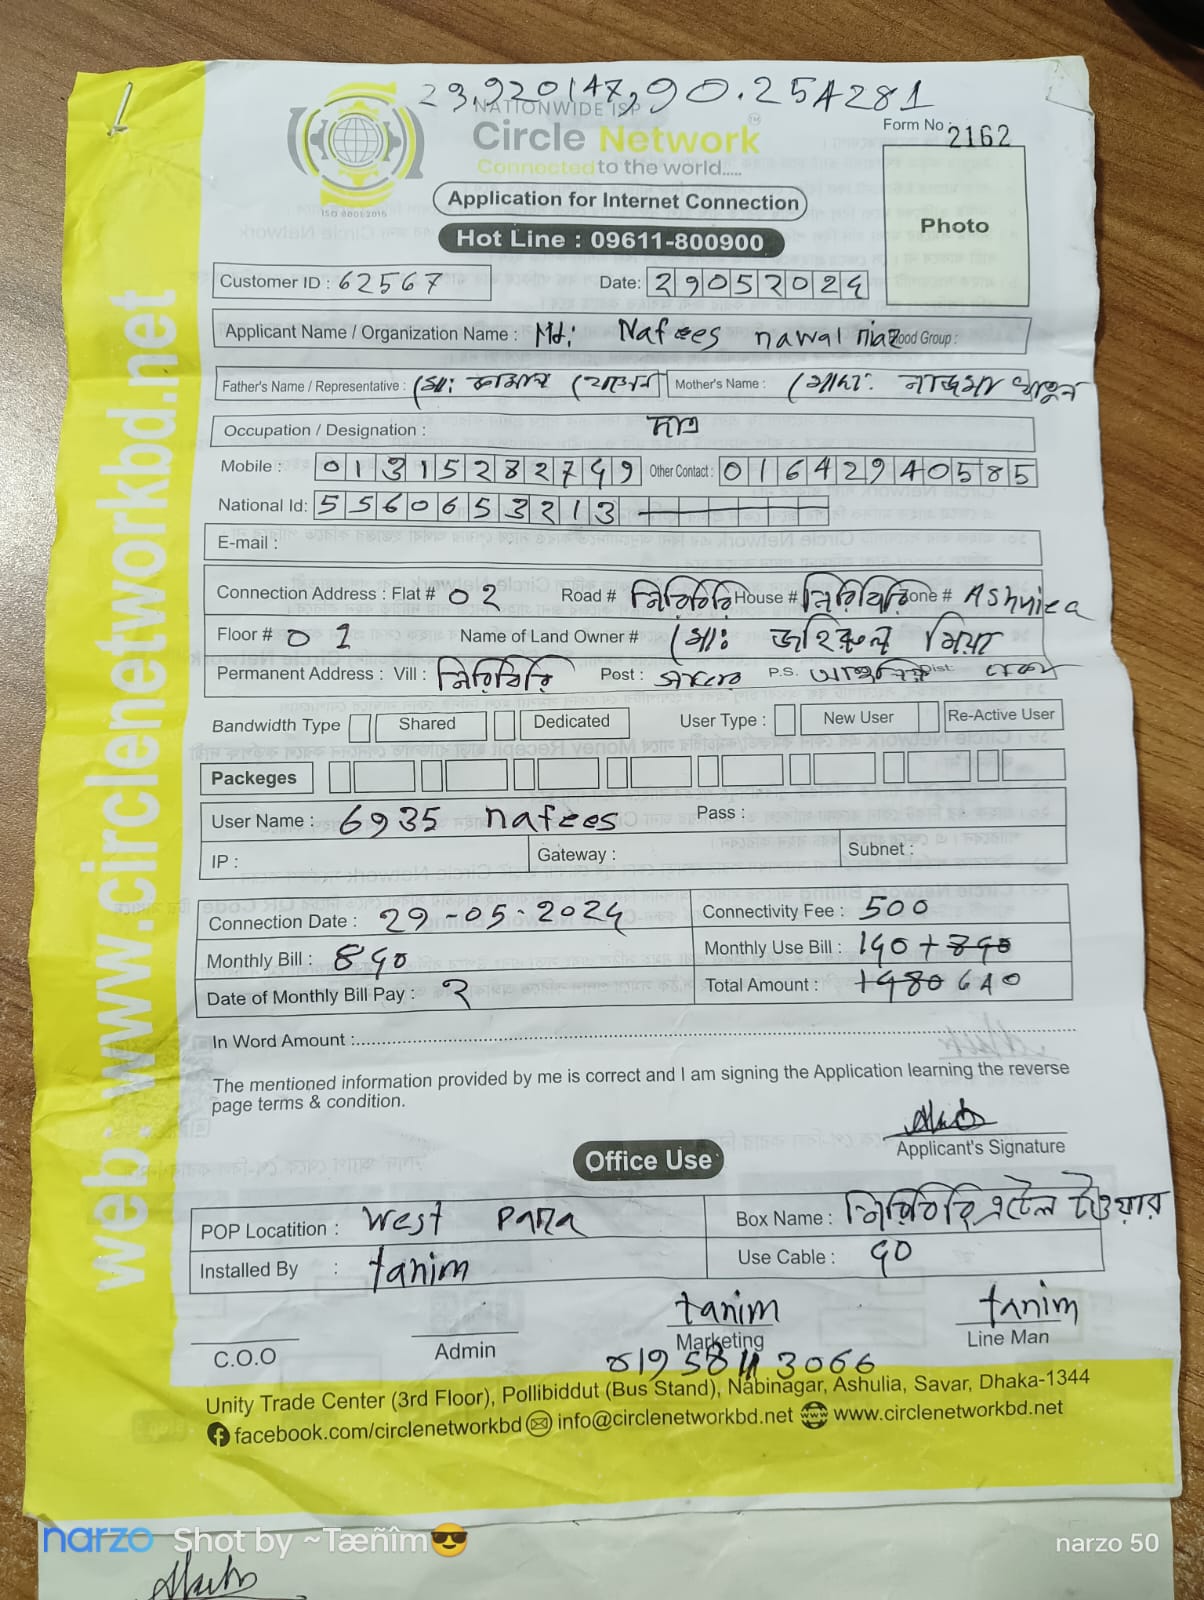 23.920147,90.254281
NATIONWIDE ISP
Circle Network TM
Connected to the world.....
ISO 9001:2015
Form No : 2162
Application for Internet Connection
Photo
Hot Line : 09611-800900
Customer ID : 62567 Date: 29052024
Applicant Name / Organization Name : Md: Nafees nawal niaz ood Group :
Father's Name / Representative : মোঃ কামাল হোসেন Mother's Name : মোছা: নাজমা খাতুন
Occupation / Designation : ছাত্র
Mobile : 01315282749 Other Contact : 01642940585
National Id: 5560653213
E-mail :
Connection Address : Flat # 02 Road # নিরিবিলি House # নিরিবিলি one # Ashulia
Floor # 01 Name of Land Owner # মোঃ জহিরুল মিয়া
Permanent Address : Vill : নিরিবিলি Post : সাভার P.S. আশুলিয়া Dist: ঢাকা
Bandwidth Type Shared Dedicated User Type : New User Re-Active User
Packeges
User Name : 6935 nafees Pass :
IP : Gateway : Subnet :
Connection Date : 29-05-2024 Connectivity Fee : 500
Monthly Bill : 840 Monthly Use Bill : 140 + 840
Date of Monthly Bill Pay : 2 Total Amount : 1480 640
In Word Amount :
The mentioned information provided by me is correct and I am signing the Application learning the reverse
page terms & condition.
Applicant's Signature
Office Use
POP Locatition : West para Box Name : নিরিবিলি এটেল টওয়ার
Installed By : tanim Use Cable : 40
tanim tanim
C.O.O Admin Marketing Line Man
01958113066
Unity Trade Center (3rd Floor), Pollibiddut (Bus Stand), Nabinagar, Ashulia, Savar, Dhaka-1344
facebook.com/circlenetworkbd info@circlenetworkbd.net www.circlenetworkbd.net
web: www.circlenetworkbd.net
narzo Shot by ~Tæñîm😎 narzo 50